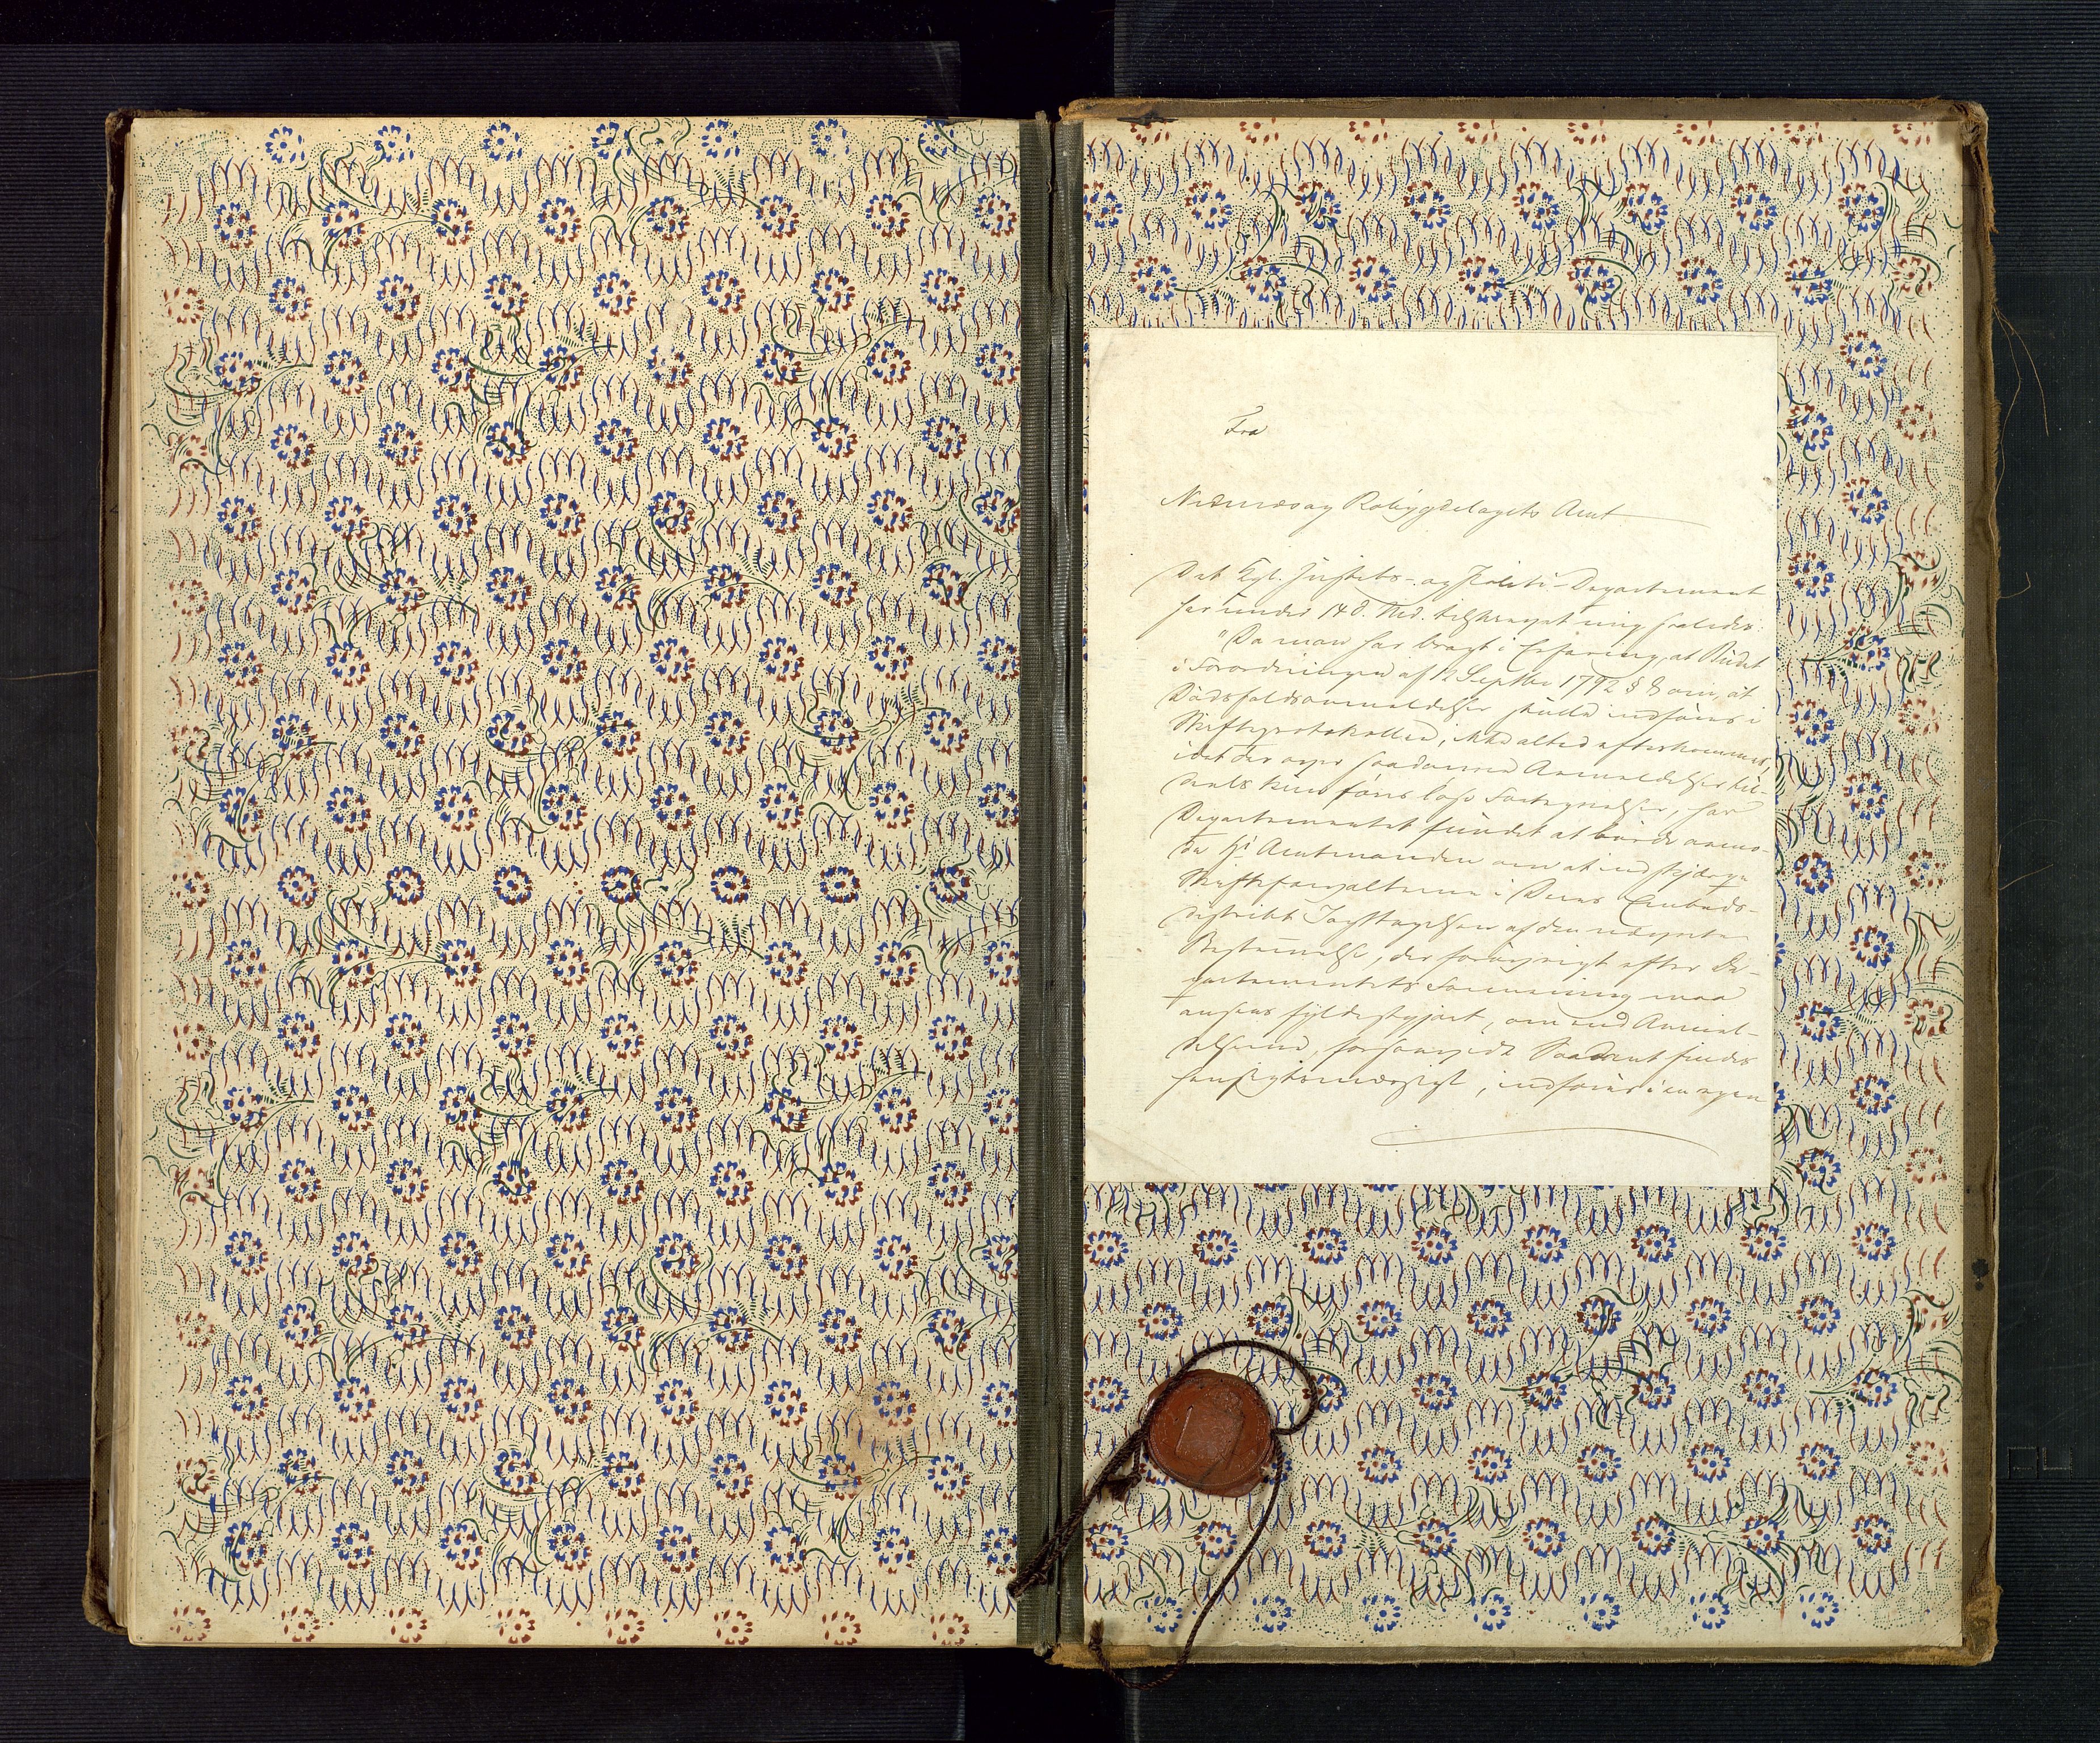 Fra
Nedenæs og Robygdelagets Amt
Det Kgl. Justits- og Politi-Departement
har under 14 d. Md. tilskrevet mig saaledes:
"Da man har bragt i Erfaring, at Budet
i Forordningen af 12 Septbr 1792 § 8 om, at
Dødsfaldsanmeldelser skulle indføres i
Skifteprotokollen, ikke altid efterkommes,
idet der over saadanne Anmeldelser til-
dels kun føres løse Fortegnelser, har
Departementet fundet at burde anmo-
de Hr Amtmanden om at indskjærpe
Skifteforvalterne i Deres Embeds-
distrikt Iagttagelsen af den nævnte
Bestemmelse, der forøvrigt efter De-
partementets Formening maa
ansees fyldestgjort, om end Anmel-
delserne, forsaavidt Saadant findes
hensigtsmæssigt, indføres i en egen